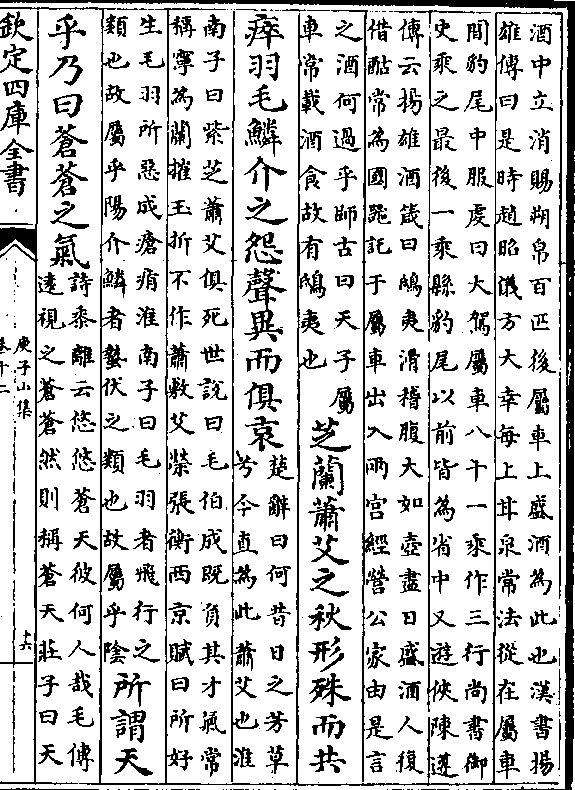 酒中立消賜朔帛百匹後屬車上盛酒為此也漢書揚
雄傳曰是時趙昭儀方大幸每上甘泉常法從在屬車
間豹尾中服虔曰大駕屬車八十一乘作三行尚書御
史乘之最後一乘縣豹尾以前皆為省中又遊俠陳遵
傳云揚雄酒箴曰鴟夷滑稽腹大如壺盡日盛酒人復
借酤常為國器託于屬車出入兩宮經營公家由是言
之酒何過乎師古曰天子屬
車常載酒食故有鴟夷也
芝蘭蕭艾之秋形殊而共
瘁羽毛鱗介之怨聲異而俱哀
楚辭曰何昔日之芳草
兮今直為此蕭艾也淮
南子曰紫芝蕭艾俱死世說曰毛伯成既負其才氣常
稱寧為蘭摧玉折不作蕭敷艾榮張衡西京賦曰所好
生毛羽所惡成瘡痏淮南子曰毛羽者飛行之
類也故屬乎陽介鱗者蟄伏之類也故屬乎陰
所謂天
乎乃曰蒼蒼之氣
詩黍離云悠悠蒼天彼何人哉毛傳
遠視之蒼蒼然則稱蒼天莊子曰天
欽定四庫全書
庾子山集
卷十二
十六